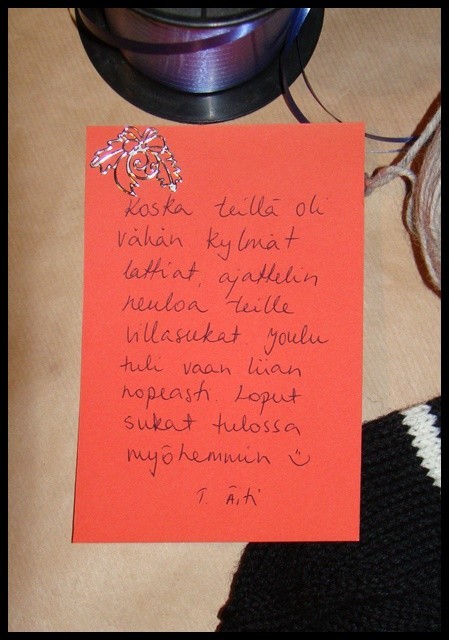 Koska teillä oli
vähän kylmät
lattiat, ajattelin
neuloa teille
villasukat. Joulu
tuli vaan liian
nopeasti. Loput
sukat tulossa
myöhemmin ☺
T. Äiti